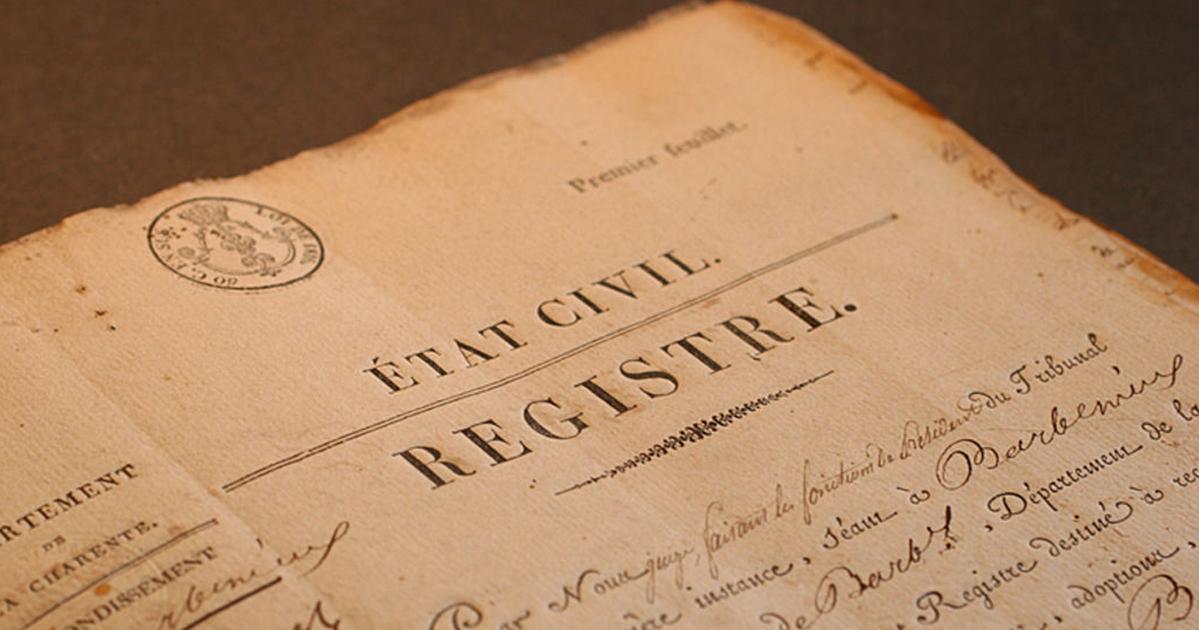 Premier feuillet.
ÉTAT CIVIL.
REGISTRE.
RTEMENT
DE
A CHARENTE.
NDISSEMENT
Par Nous juge, faisant les fonctions de Président du Tribunal
instance, séant à Barbezieux
de Barbx, Département de la
Registre destiné à rec
adoptions,